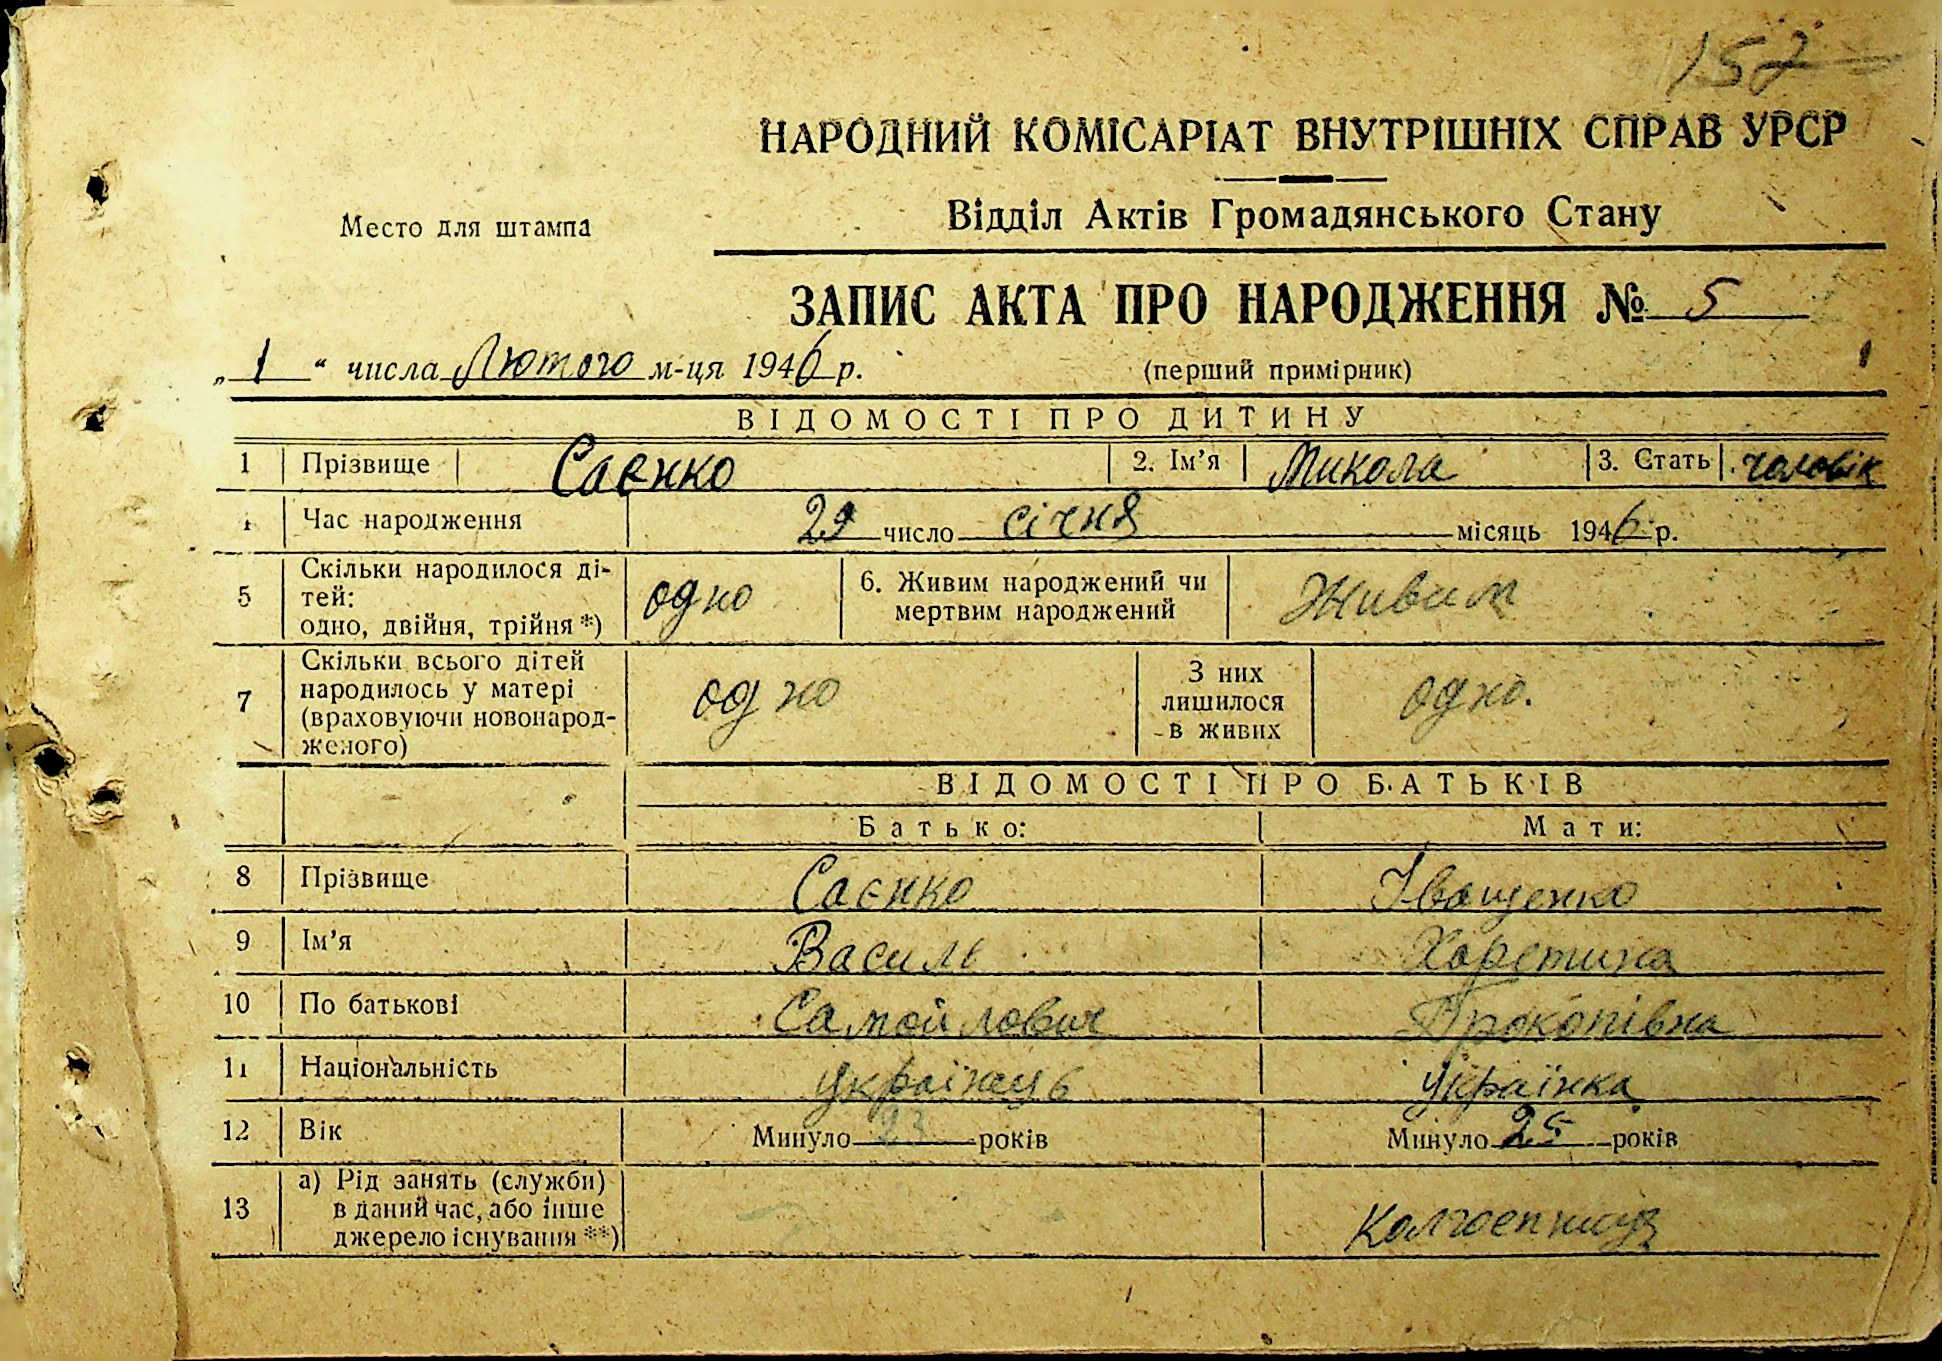 157
НАРОДНИЙ КОМІСАРІАТ ВНУТРІШНІХ СПРАВ УРСР
Место для штампа
Відділ Актів Громадянського Стану
ЗАПИС АКТА ПРО НАРОДЖЕННЯ № 5
„ 1 “ числа Лютого м-ця 1946 р. (перший примірник)
ВІДОМОСТІ ПРО ДИТИНУ
1 Прізвище Саєнко 2. Ім'я Микола 3. Стать чоловік
Час народження 29 число січня місяць 1946 р.
5 Скільки народилося ді-
тей:
одно, двійня, трійня *) одно 6. Живим народжений чи
мертвим народжений Живим
7 Скільки всього дітей
народилось у матері
(враховуючи новонарод-
женого) одно З них
лишилося
в живих одно.
ВІДОМОСТІ ПРО БАТЬКІВ
Батько: Мати:
8 Прізвище Саєнко Іващенко
9 Ім'я Василь Харетина
10 По батькові Самойлович Прокопівна
11 Національність українець українка
12 Вік Минуло 23 років Минуло 25 років
13 а) Рід занять (служби)
в даний час, або інше
джерело існування **) Колгоспниця